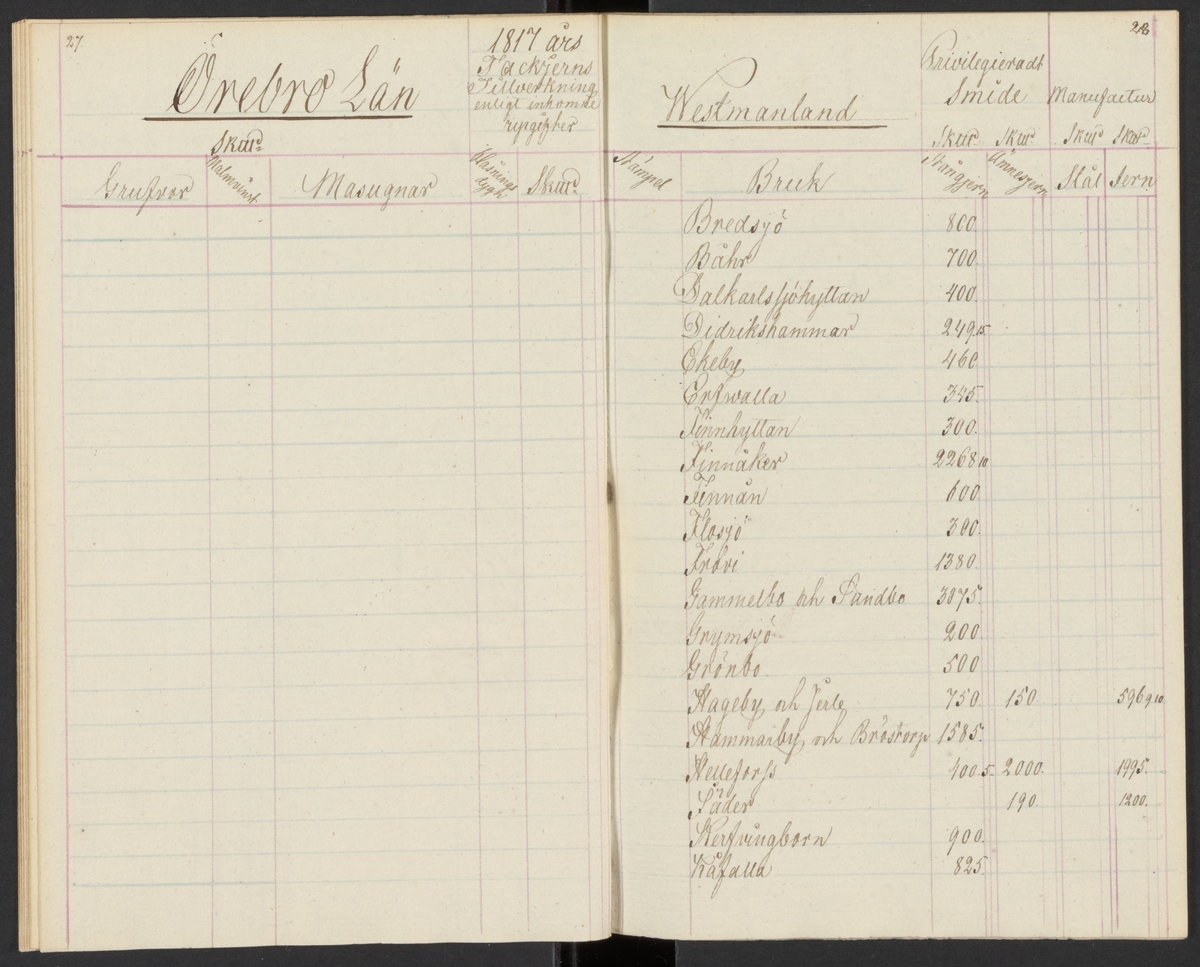 27
Örebro Län
1817 års
Tackjerns
Tillverkning
enligt inkomne
uppgifter
Skutt
Grufvor
Malmvinst
Masugnar
Blåsnings
dygn
Skutt
28
Westmanland
Privilegieradt
Smide
Manufactur
Skutt Skutt Skutt Skutt
Stämpel
Bruk
Stångjern
Ämnesjern
Stål
Jern
Bredsjö 800.
Båhr 700.
Dalkarlssjöhyttan 400.
Didrikshammar 249 15.
Ekeby 460
Erfvalla 345.
Finnhyttan 300.
Finnåker 2268 10
Finnån 600
Flosjö 300.
Frövi 1380.
Gammelbo och Sandbo 3075.
Grymsjö 200
Grönbo 500
Hageby och Jerle 750. 150 596 9 10
Hammarby och Bröstorp 1585.
Helleforss 400 5. 2000. 1995.
Jäder 190. 1200.
Kerfvingborn 900.
Kåfalla 825.